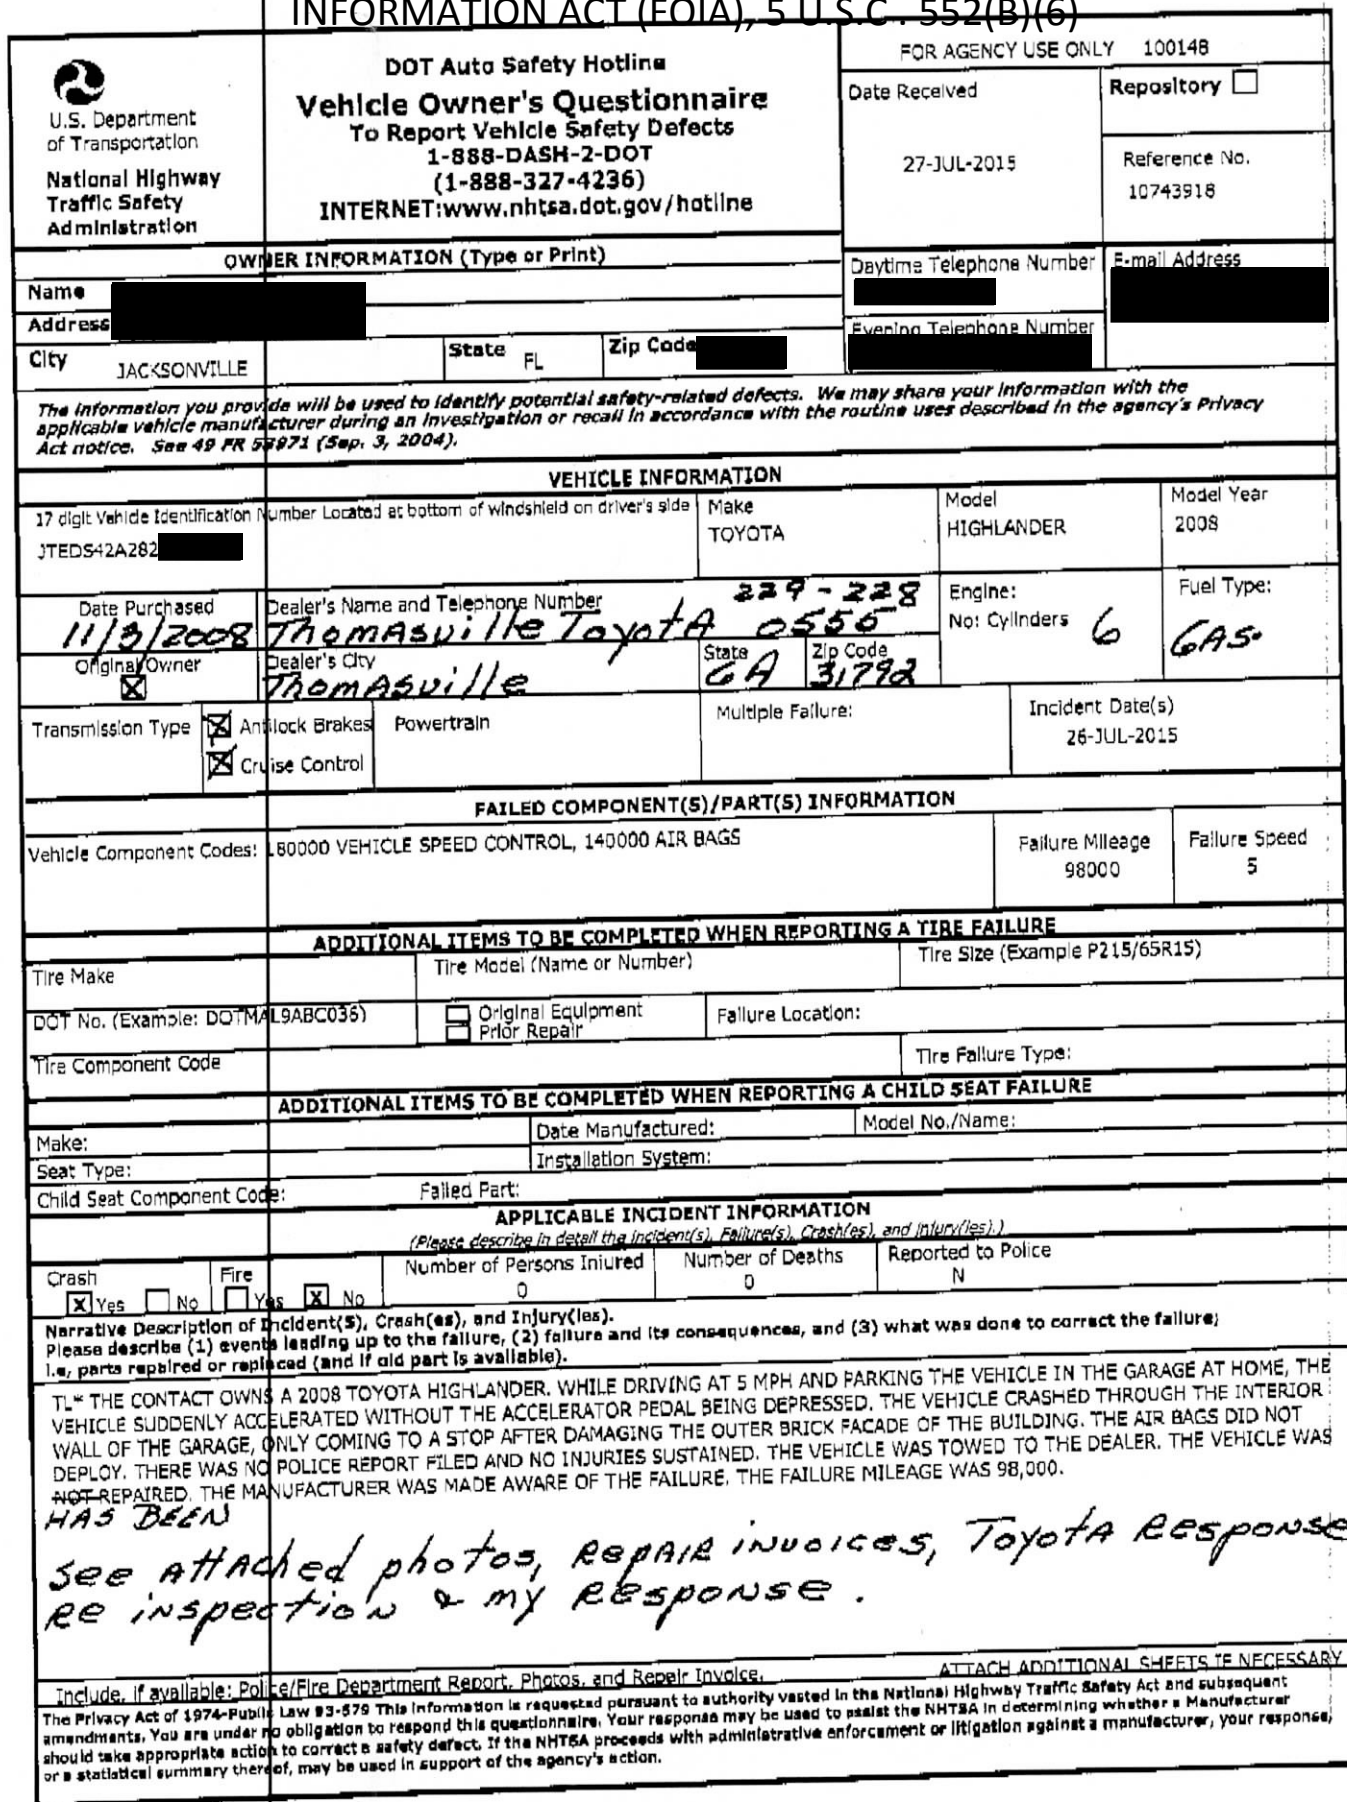 INFORMATION ACT (FOIA), 5 U.S.C . 552(B)(6)
U.S. Department
of Transportation
National Highway
Traffic Safety
Administration
DOT Auto Safety Hotline
Vehicle Owner's Questionnaire
To Report Vehicle Safety Defects
1-888-DASH-2-DOT
(1-888-327-4236)
INTERNET:www.nhtsa.dot.gov/hotline
FOR AGENCY USE ONLY 100148
Date Received
27-JUL-2015
Repository
Reference No.
10743918
OWNER INFORMATION (Type or Print)
Name
Address
City JACKSONVILLE
State FL
Zip Code
Daytime Telephone Number
Evening Telephone Number
E-mail Address
The information you provide will be used to identify potential safety-related defects. We may share your information with the
applicable vehicle manufacturer during an investigation or recall in accordance with the routine uses described in the agency's Privacy
Act notice. See 49 FR 53971 (Sep. 3, 2004).
VEHICLE INFORMATION
17 digit Vehicle Identification Number Located at bottom of windshield on driver's side
JTEDS42A282
Make
TOYOTA
Model
HIGHLANDER
Model Year
2008
Date Purchased
11/3/2008
Dealer's Name and Telephone Number 229-228
Thomasville Toyota 0555
Engine:
No: Cylinders 6
Fuel Type:
GAS.
Original Owner
X
Dealer's City
Thomasville
State
GA
Zip Code
31792
Transmission Type
X Antilock Brakes
X Cruise Control
Powertrain
Multiple Failure:
Incident Date(s)
26-JUL-2015
FAILED COMPONENT(S)/PART(S) INFORMATION
Vehicle Component Codes: 180000 VEHICLE SPEED CONTROL, 140000 AIR BAGS
Failure Mileage
98000
Failure Speed
5
ADDITIONAL ITEMS TO BE COMPLETED WHEN REPORTING A TIRE FAILURE
Tire Make
Tire Model (Name or Number)
Tire Size (Example P215/65R15)
DOT No. (Example: DOTMAL9ABC036)
Original Equipment
Prior Repair
Failure Location:
Tire Component Code
Tire Failure Type:
ADDITIONAL ITEMS TO BE COMPLETED WHEN REPORTING A CHILD SEAT FAILURE
Make:
Date Manufactured:
Model No./Name:
Seat Type:
Installation System:
Child Seat Component Code:
Failed Part:
APPLICABLE INCIDENT INFORMATION
(Please describe in detail the incident(s), Failure(s), Crash(es), and injury(ies).)
Crash
X Yes No
Fire
Yes X No
Number of Persons Injured
0
Number of Deaths
0
Reported to Police
N
Narrative Description of Incident(S), Crash(es), and Injury(ies).
Please describe (1) events leading up to the failure, (2) failure and its consequences, and (3) what was done to correct the failure;
i.e, parts repaired or replaced (and if old part is available).
TL* THE CONTACT OWNS A 2008 TOYOTA HIGHLANDER. WHILE DRIVING AT 5 MPH AND PARKING THE VEHICLE IN THE GARAGE AT HOME, THE
VEHICLE SUDDENLY ACCELERATED WITHOUT THE ACCELERATOR PEDAL BEING DEPRESSED. THE VEHICLE CRASHED THROUGH THE INTERIOR
WALL OF THE GARAGE, ONLY COMING TO A STOP AFTER DAMAGING THE OUTER BRICK FACADE OF THE BUILDING. THE AIR BAGS DID NOT
DEPLOY. THERE WAS NO POLICE REPORT FILED AND NO INJURIES SUSTAINED. THE VEHICLE WAS TOWED TO THE DEALER. THE VEHICLE WAS
NOT REPAIRED. THE MANUFACTURER WAS MADE AWARE OF THE FAILURE. THE FAILURE MILEAGE WAS 98,000.
HAS BEEN
See attached photos, repair invoices, Toyota response
re inspection & my response.
Include, if available: Police/Fire Department Report, Photos, and Repair Invoice.
ATTACH ADDITIONAL SHEETS IF NECESSARY
The Privacy Act of 1974-Public Law 93-579 This information is requested pursuant to authority vested in the National Highway Traffic Safety Act and subsequent
amendments. You are under no obligation to respond this questionnaire. Your response may be used to assist the NHTSA in determining whether a Manufacturer
should take appropriate action to correct a safety defect. If the NHTSA proceeds with administrative enforcement or litigation against a manufacturer, your response,
or a statistical summary thereof, may be used in support of the agency's action.